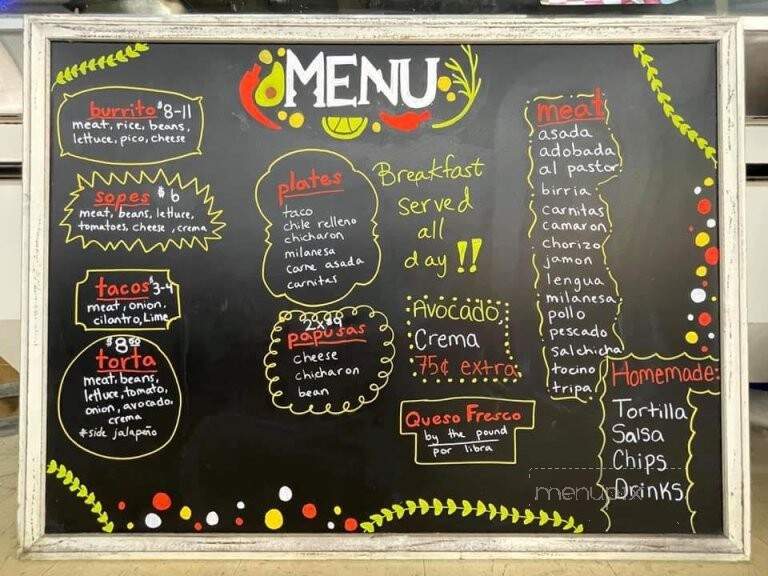 MENU
burrito $8-11
meat, rice, beans,
lettuce, pico, cheese
sopes $6
meat, beans, lettuce,
tomatoes, cheese, crema
tacos $3-4
meat, onion,
cilantro, Lime
$8.00
torta
meat, beans,
lettuce, tomato,
onion, avocado,
crema
*side jalapeño
plates
taco
chile relleno
chicharon
milanesa
carne asada
carnitas
papusas
cheese
chicharon
bean
Breakfast
served
all
day !!
Avocado,
Crema
75¢ extra
Queso Fresco
by the pound
por libra
meat
asada
adobada
al pastor
birria
carnitas
camaron
chorizo
jamon
lengua
milanesa
pollo
pescado
salchicha
tocino
tripa
Homemade:
Tortilla
Salsa
Chips
Drinks
menupix